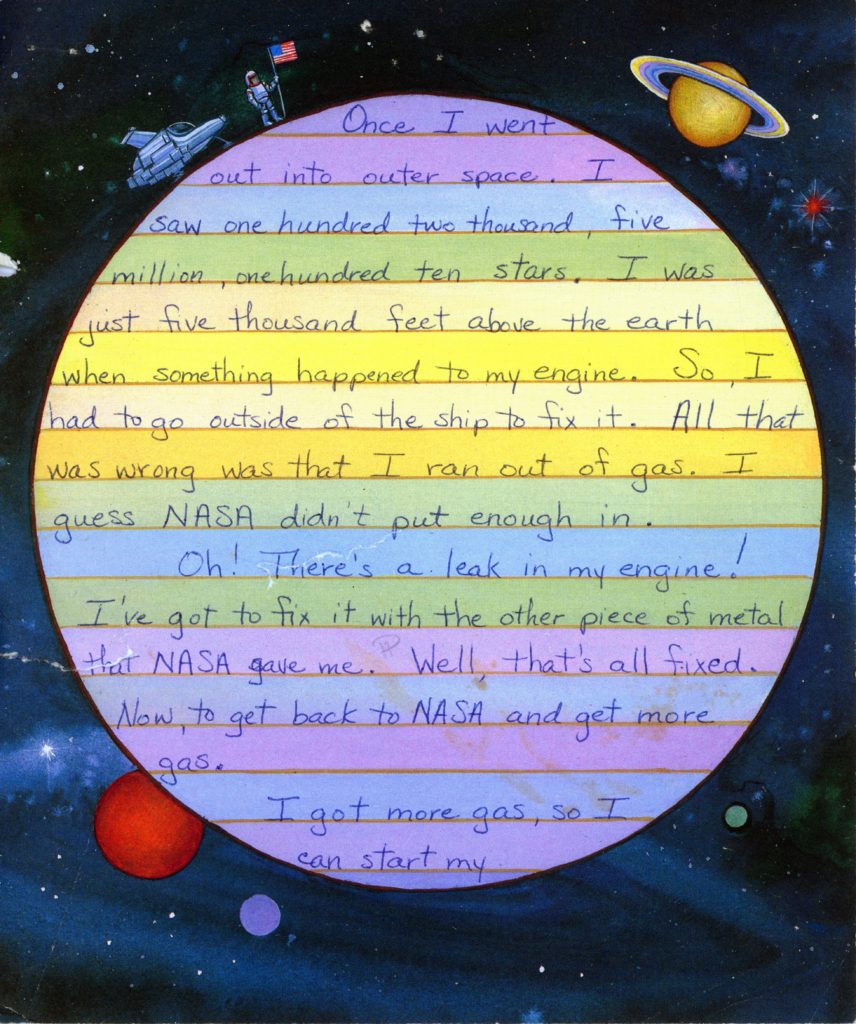 Once I went
out into outer space. I
saw one hundred two thousand, five
million, one hundred ten stars. I was
just five thousand feet above the earth
when something happened to my engine. So, I
had to go outside of the ship to fix it. All that
was wrong was that I ran out of gas. I
guess NASA didn't put enough in.
Oh! There's a leak in my engine!
I've got to fix it with the other piece of metal
that NASA gave me. Well, that's all fixed.
Now, to get back to NASA and get more
gas.
I got more gas, so I
can start my